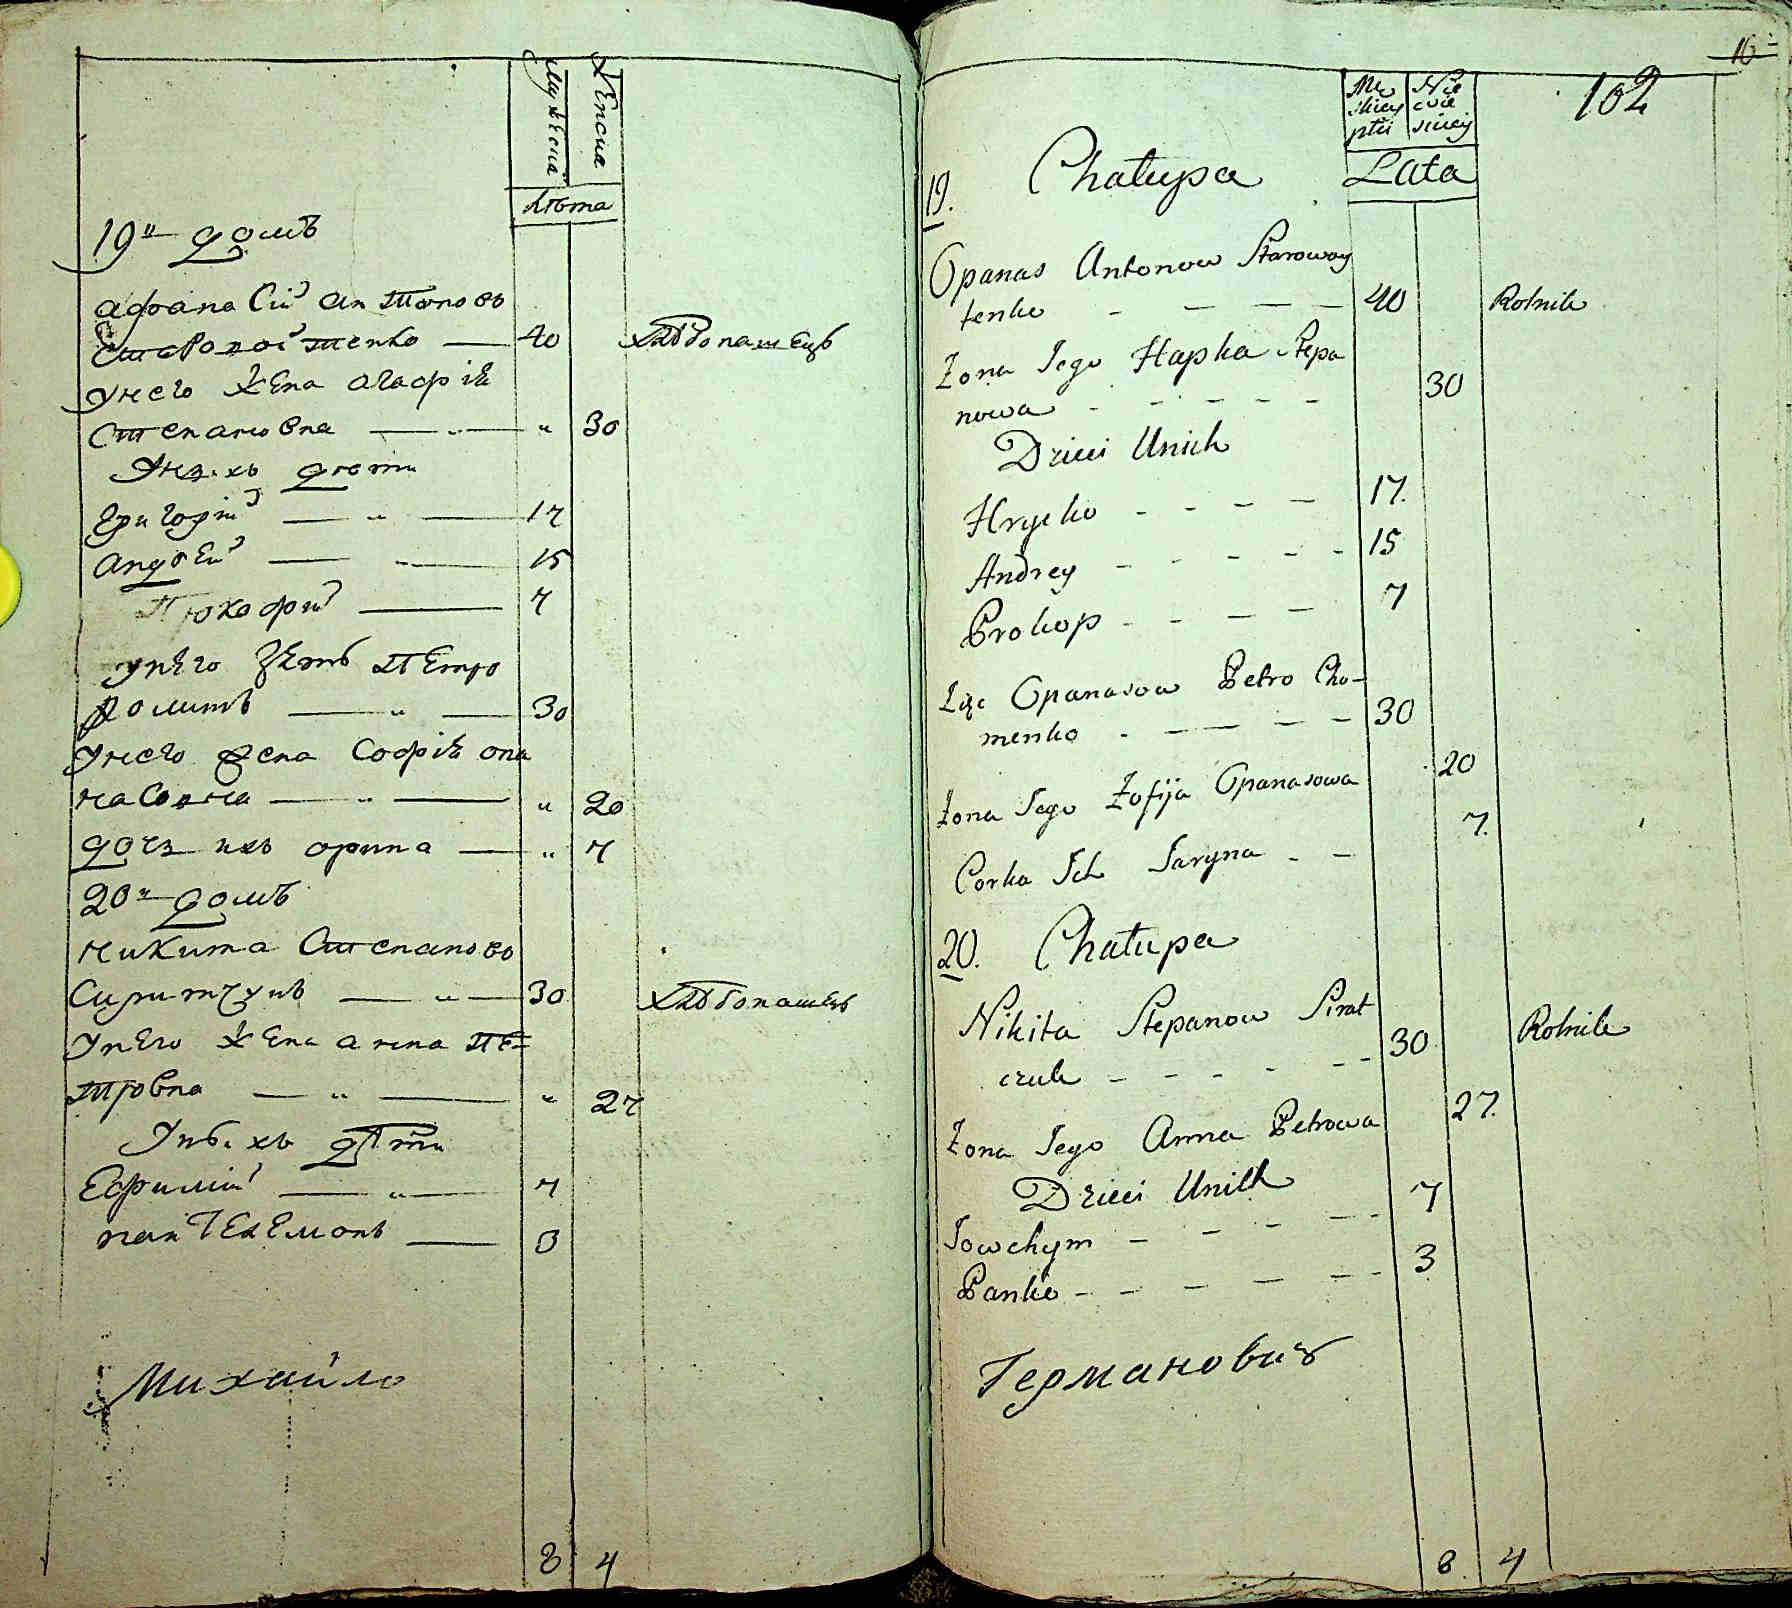 Мужеска Женска
лѣта
19й домъ
Афанасій Антоновъ
Старовойтенко — 40 хлѣбопашецъ
у него жена Агафія
Степановна — " — " 30
У нихъ дѣти
Григорій — " — 17
Андрей — " — 15
Прокофій — 7
у него зять Петро
Хомитъ — " — 30
у него жена Софія Опа
насовна — " — " 20
дочь ихъ Орина — " 7
20й домъ
Никита Степановъ
Сиритчукъ — " — 30 хлѣбопашецъ
у него жена Анна Пе=
тровна — " — " 27
У нихъ дѣти
Ефимій — " — 7
Пантелемонъ — 3
Михайло
8 4
16
102
Męskiey płci Niewieściey
Lata
19. Chałupa
Opanas Antonow Starowoy
tenko - — — — 40 Rolnik
Żona Jego Hapka Stepa
nowa - - - - - 30
Dzieci Unich
Hryćko - - - — 17.
Andrey - - - - - 15
Prokop - - — — 7
Zięć Opanasow Petro Cho-
menko - — — — — 30
Żona Jego Zofija Opanasowa 20
Corka Ich Jaryna - — 7.
20. Chałupa
Nikita Stepanow Sirat
czuk - - - - — 30 Rolnik
Żona Jego Anna Petrowa 27.
Dzieci Unich
Jowchym - — - — - 7
Panko - - — — — - 3
Германовичъ
8. 4